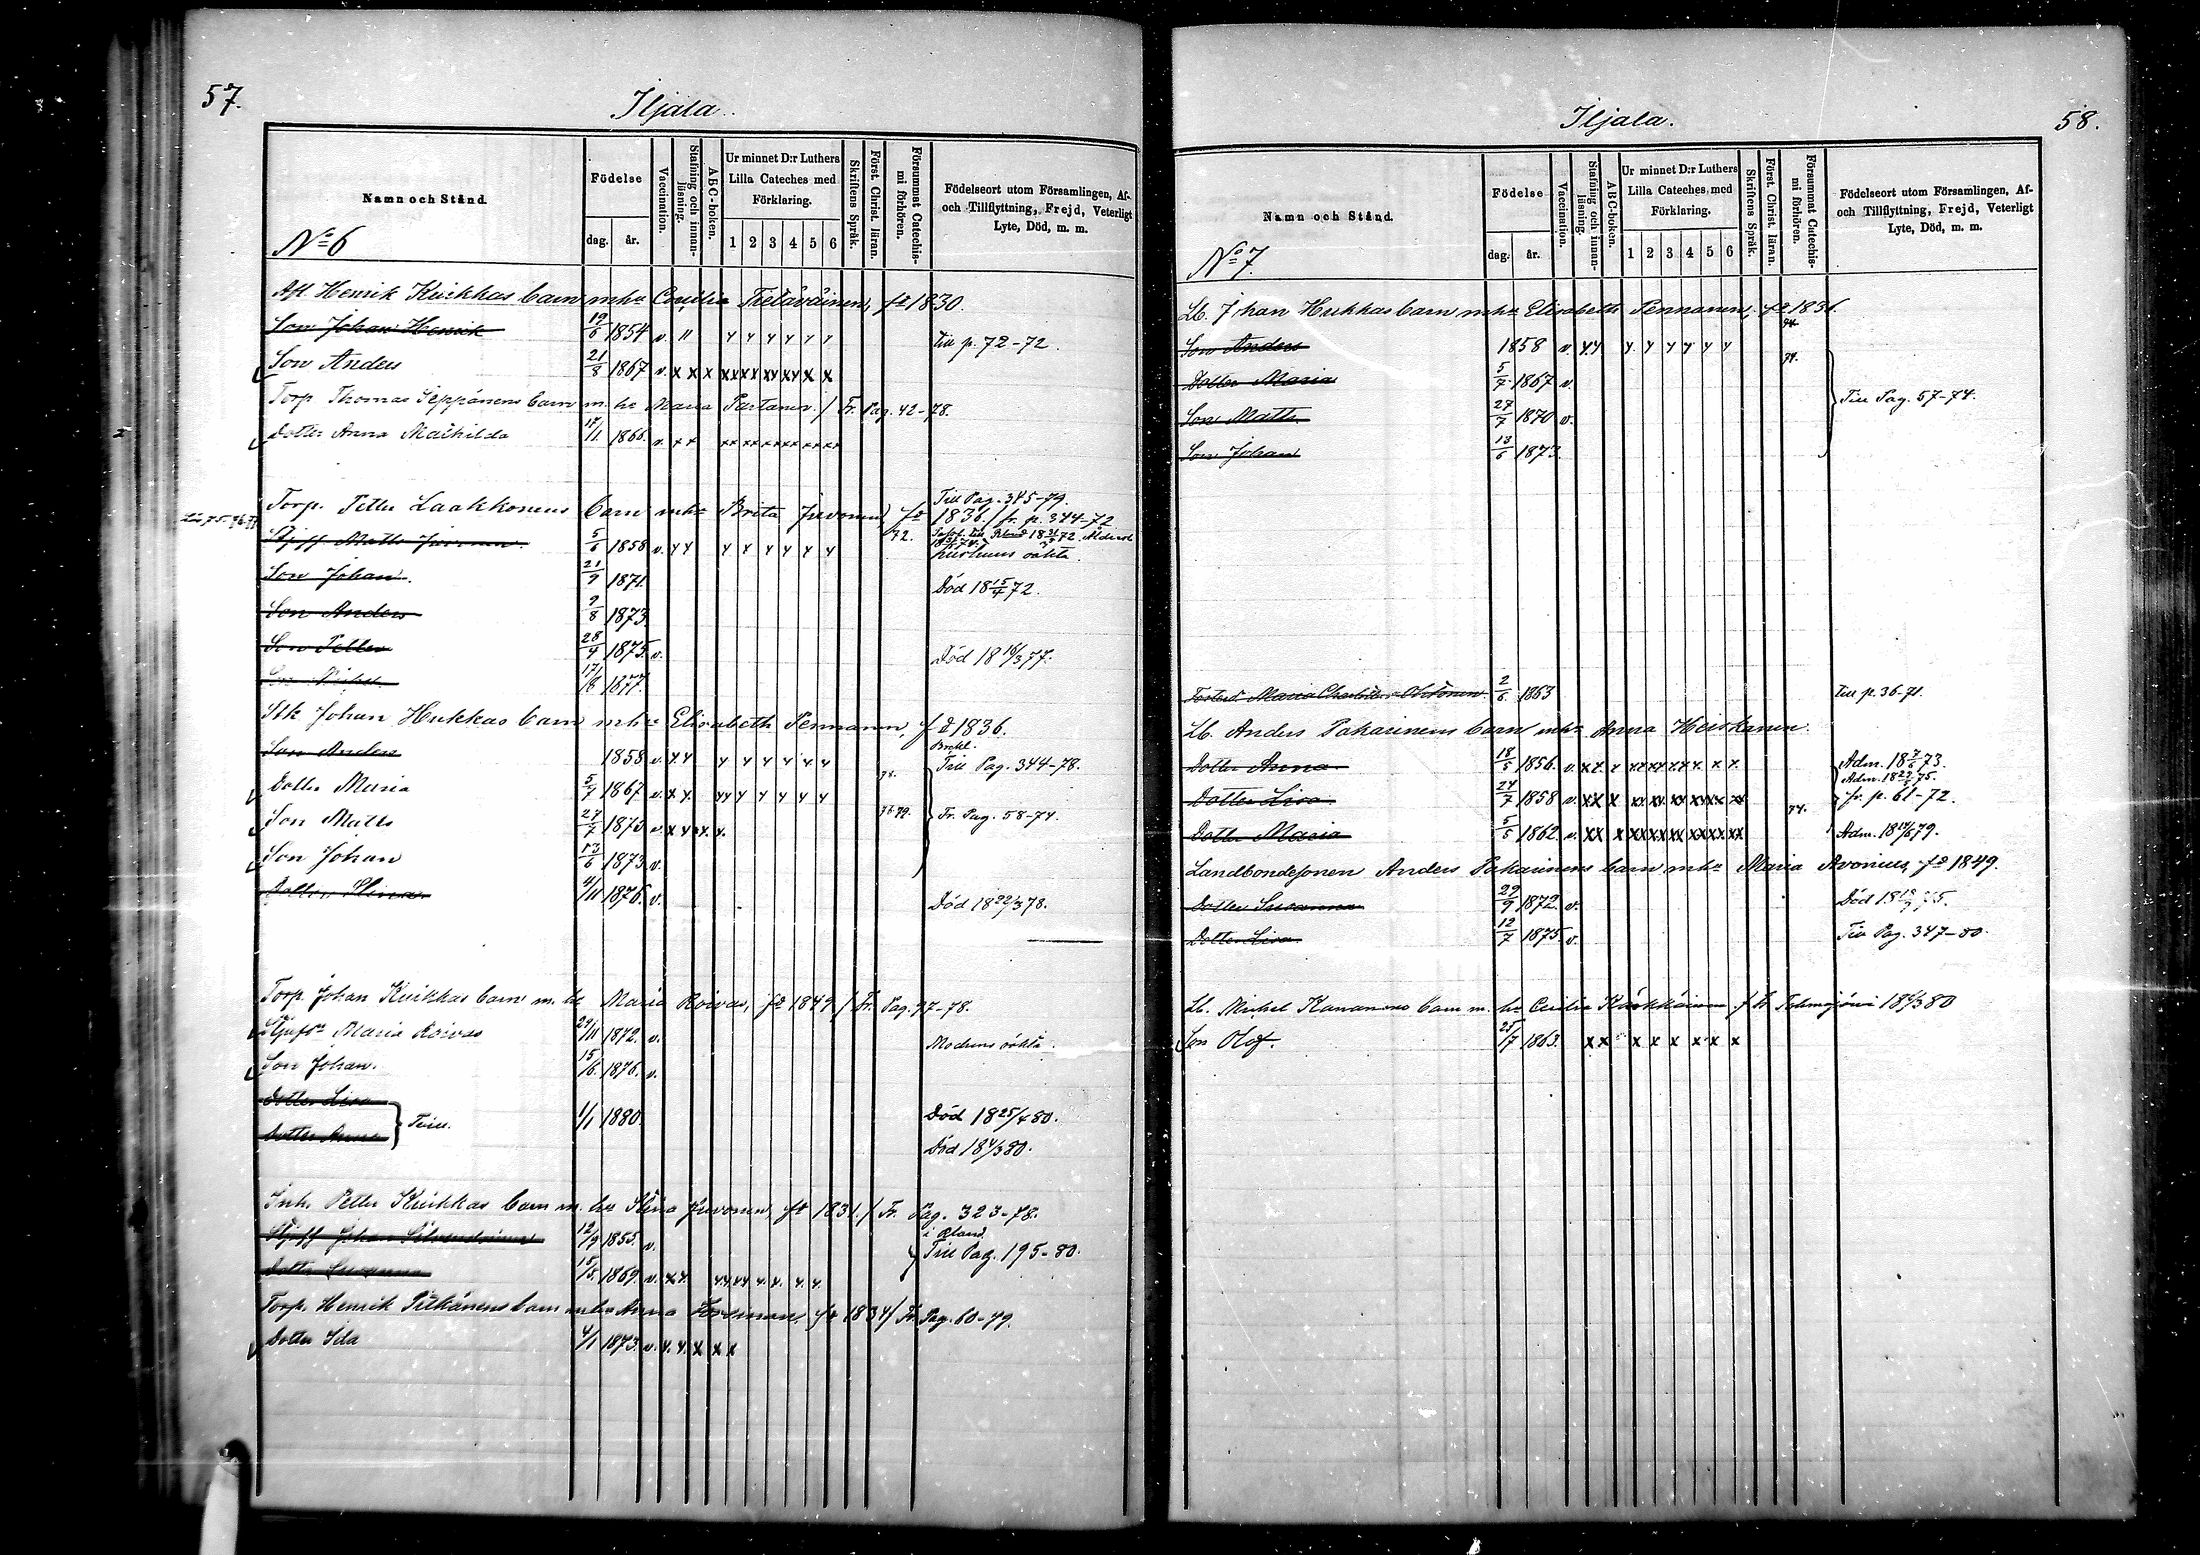 57.
Iljala.
Namn och Stånd
Födelse
dag. år.
Vaccination.
Stafning och innanläsning.
ABC-boken.
Ur minnet D:r Luthers Lilla Cateches med Förklaring.
1 2 3 4 5 6
Skriftens Språk.
Först. Christ. läran.
Försummat Catechismi förhören.
Födelseort utom Församlingen, Af- och Tillflyttning, Frejd, Veterligt Lyte, Död, m. m.
No 6
Afl. Henrik Kuikkas barn mhu Cecilia fd 1830.
Son Johan Henrik 19/6 1854 v. Till p. 72-72.
Son Anders 21/8 1867 v. x x x xx xx xx xx x x
Torp. Thomas Seppänens barn m. hu Maria Partanen / Fr. Pag. 42-78.
Dotter Anna Mathilda 17/11 1866. v. x x
Till Pag. 345-79.
Torp. Petter Laakkonens barn mhu Brita Juvonen fd 1836. / fr. p. 344-72
Styfs Matts Juvonen 5/6 1858 v. 72.
hustruns oäkta.
Son Johan. 21/9 1871. Död 18 15/4 72.
Son Anders 9/8 1873.
Son Petter 28/4 1875. v. Död 18 16/3 77.
17/8 1877.
Stk Johan Hukkas barn mhu Elisabeth Pennanen, fd 1836.
Son Anders 1858 v. 78. Till Pag. 344-78.
Dotter Maria 5/7 1867 v.
Son Matts 27/7 1870 v. Fr. Pag. 58-74.
Son Johan 13/6 1873 v.
Dotter Stina 4/11 1876. v. Död 18 22/3 78.
Torp. Johan Kuikkas barn m. hu Maria Roivas, fd 1849 / Fr. Pag. 77-78.
Styfdr Maria Roivas 29/11 1872. v. Modrens oäkta.
Son Johan. 15/6 1876. v.
Dotter Lisa } Tvill. 1/1 1880. Död 18 25/4 80.
Dotter Anna Död 18 4/3 80.
Inh. Petter Kuikkas barn m. hu Stina Juvonen, fd 1831. / Fr. Pag. 323-78.
Styfs Johan 12/9 1855. v. i Åland
Till Pag. 195-80.
Dotter Susanna 15/8 1869. v.
Torp. Henrik Pitkänens barn mhu Anna fd 1834 / Fr. Pag. 60-79.
Dotter Ida 4/1 1873. v.
58.
Iljala.
Namn och Stånd.
Födelse
dag. år.
Vaccination.
Stafning och innanläsning.
ABC-boken.
Ur minnet D:r Luthers Lilla Cateches med Förklaring.
1 2 3 4 5 6
Skriftens Språk.
Först. Christ. läran.
Försummat Catechismi förhören.
Födelseort utom Församlingen, Af- och Tillflyttning, Frejd, Veterligt Lyte, Död, m. m.
No 7.
Lb. Johan Hukkas barn mhu Elisabeth Pennanen, fd 1836.
Son Anders 1858 v.
Dotter Maria 5/7 1867 v. 74.
Till Pag. 57-74.
Son Matts 27/7 1870 v.
Son Johan 13/6 1873.
Fosterd. Maria Charlotta 2/6 1863 Till p. 36-71.
Lb. Anders Pakarinens barn mhu Anna Heiskanen.
Dotter Anna 18/5 1856. v. Adm. 18 7/6 73.
Adm. 18 29/5 75.
Dotter Lisa 24/7 1858 v. fr. p. 61-72.
Dotter Maria 5/5 1862. v. 74. Adm. 18 14/6 79.
Landbondesonen Anders Pakarinens barn mhu Maria Avonius, fd 1849.
Dotter Susanna 29/9 1872. v. Död
Dotter Lisa 12/7 1875. v. Till Pag. 347-80.
Lb. Michel Kananens barn m. hu Cecilia Kärkkäinen / fr. 80
Son Olof. 25/7 1863. x x x x x x x x